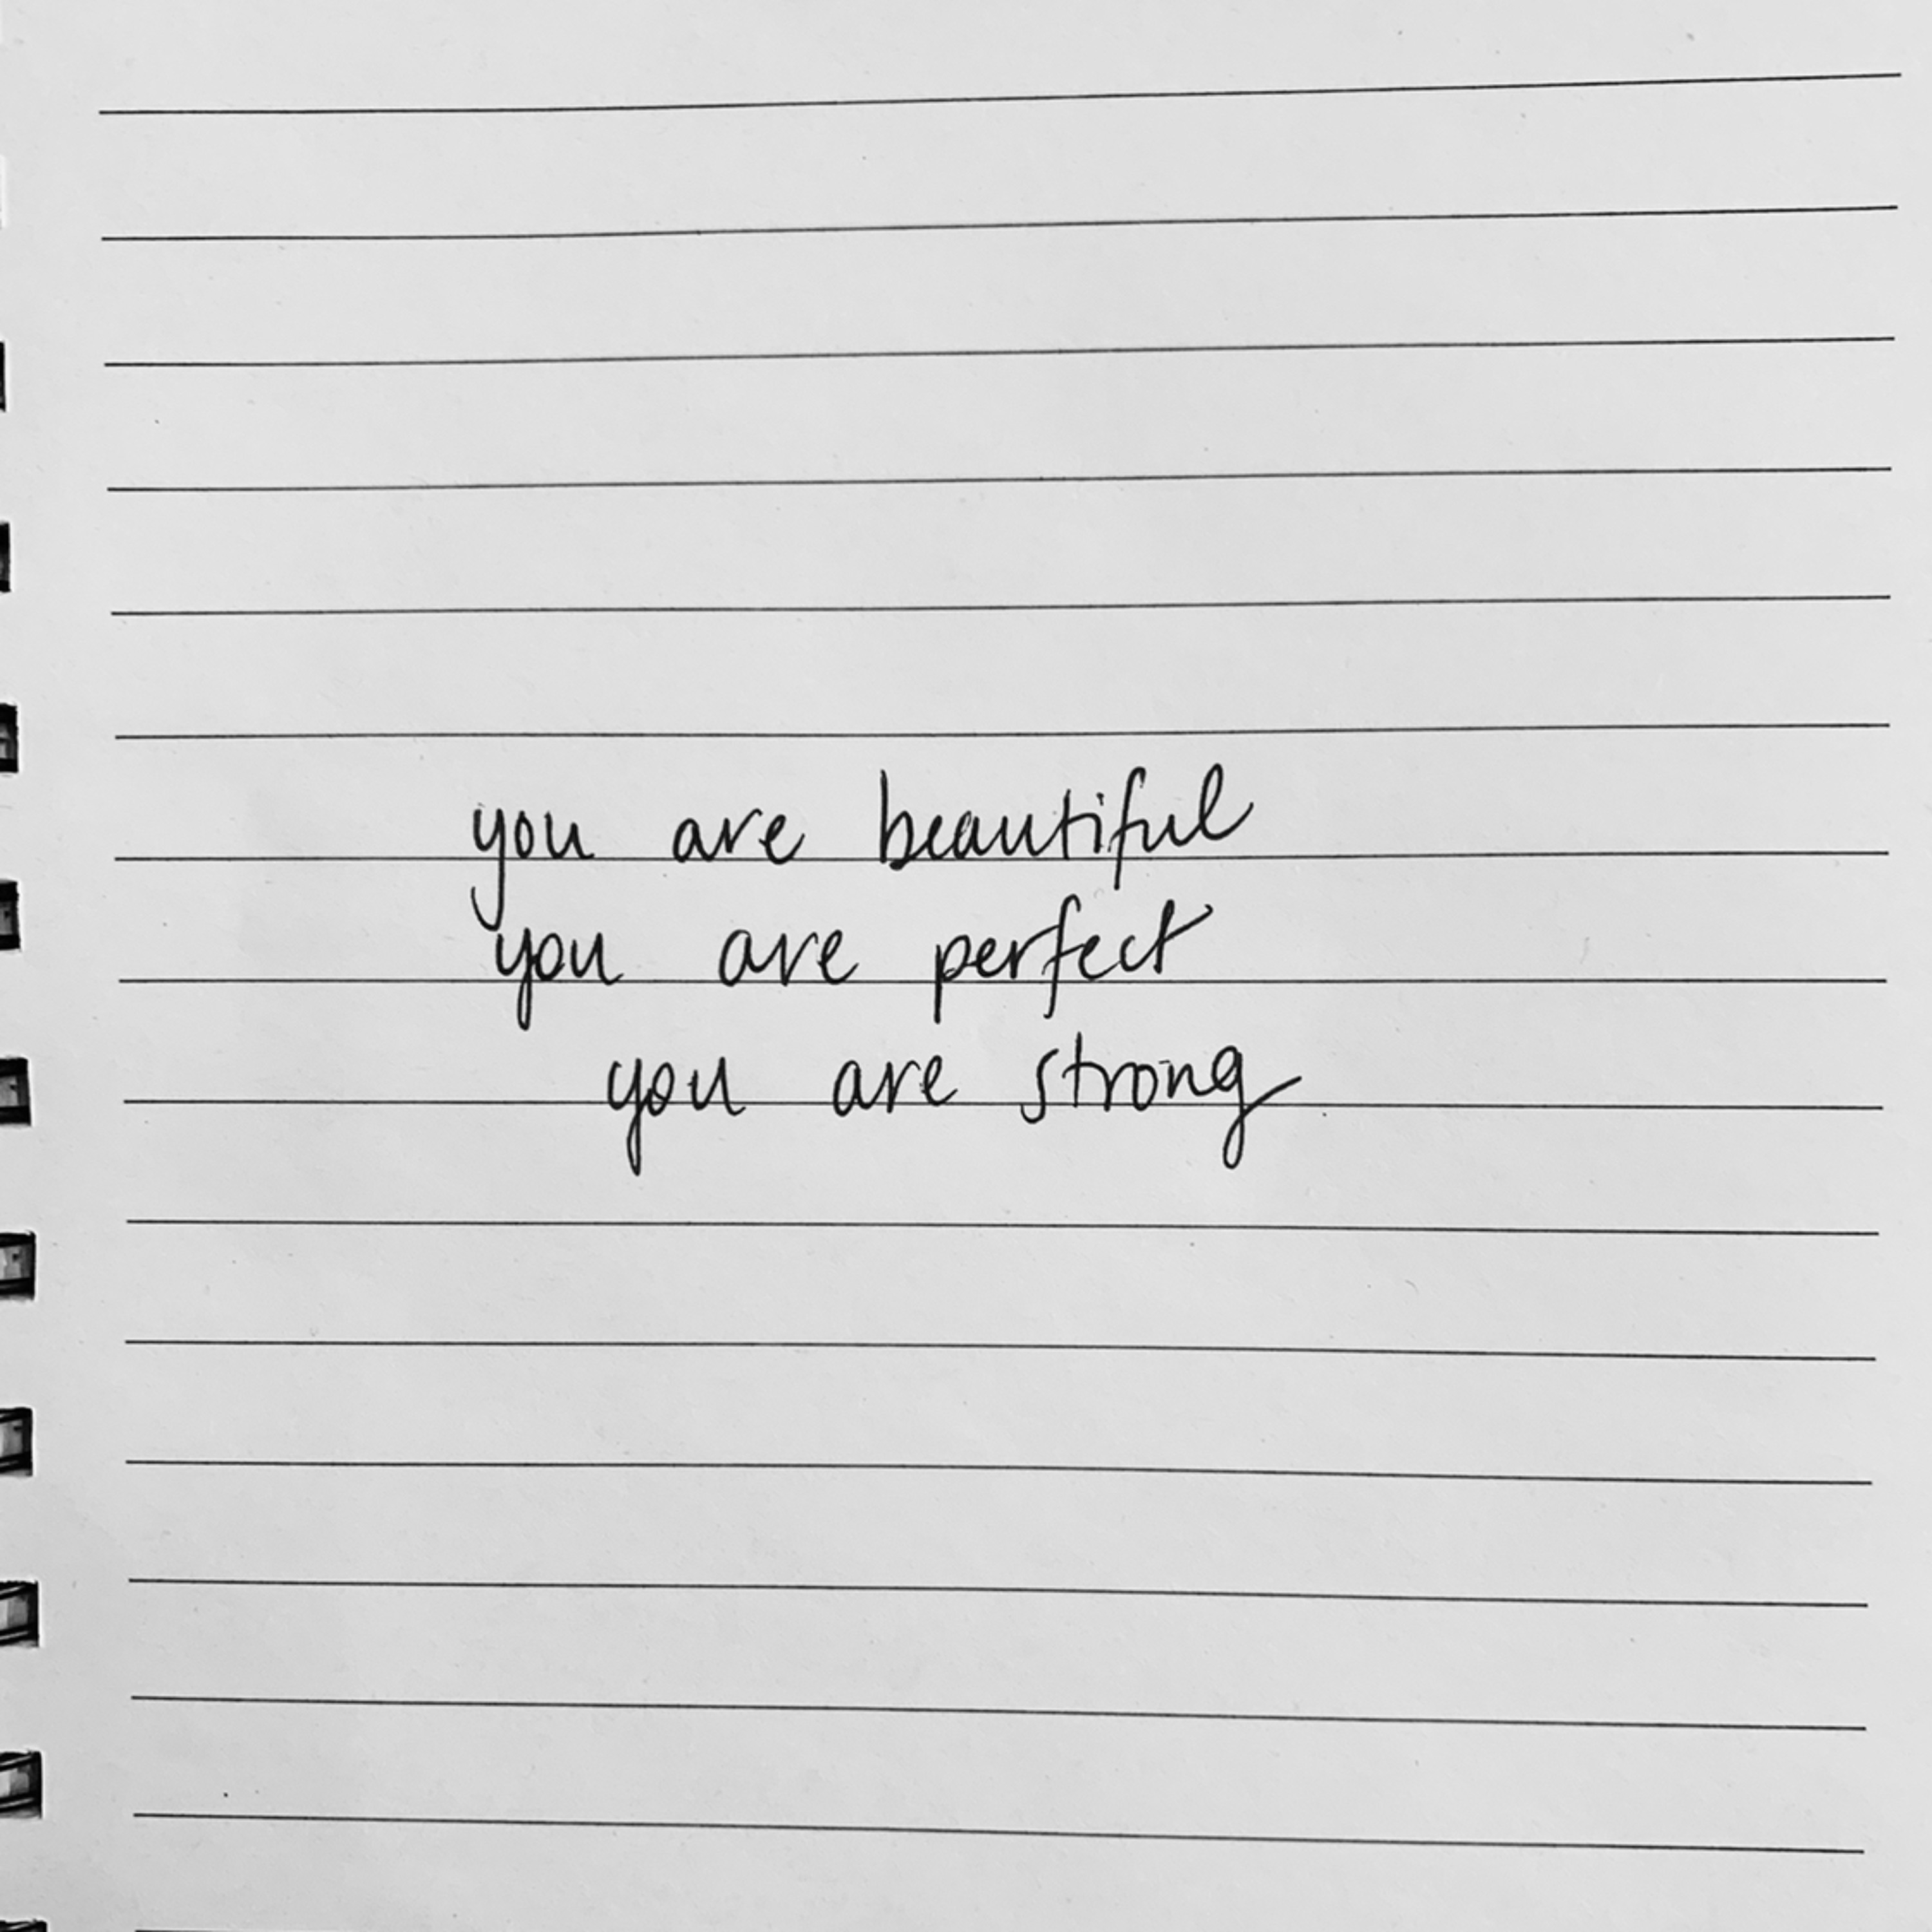 you are beautiful
you are perfect
you are strong